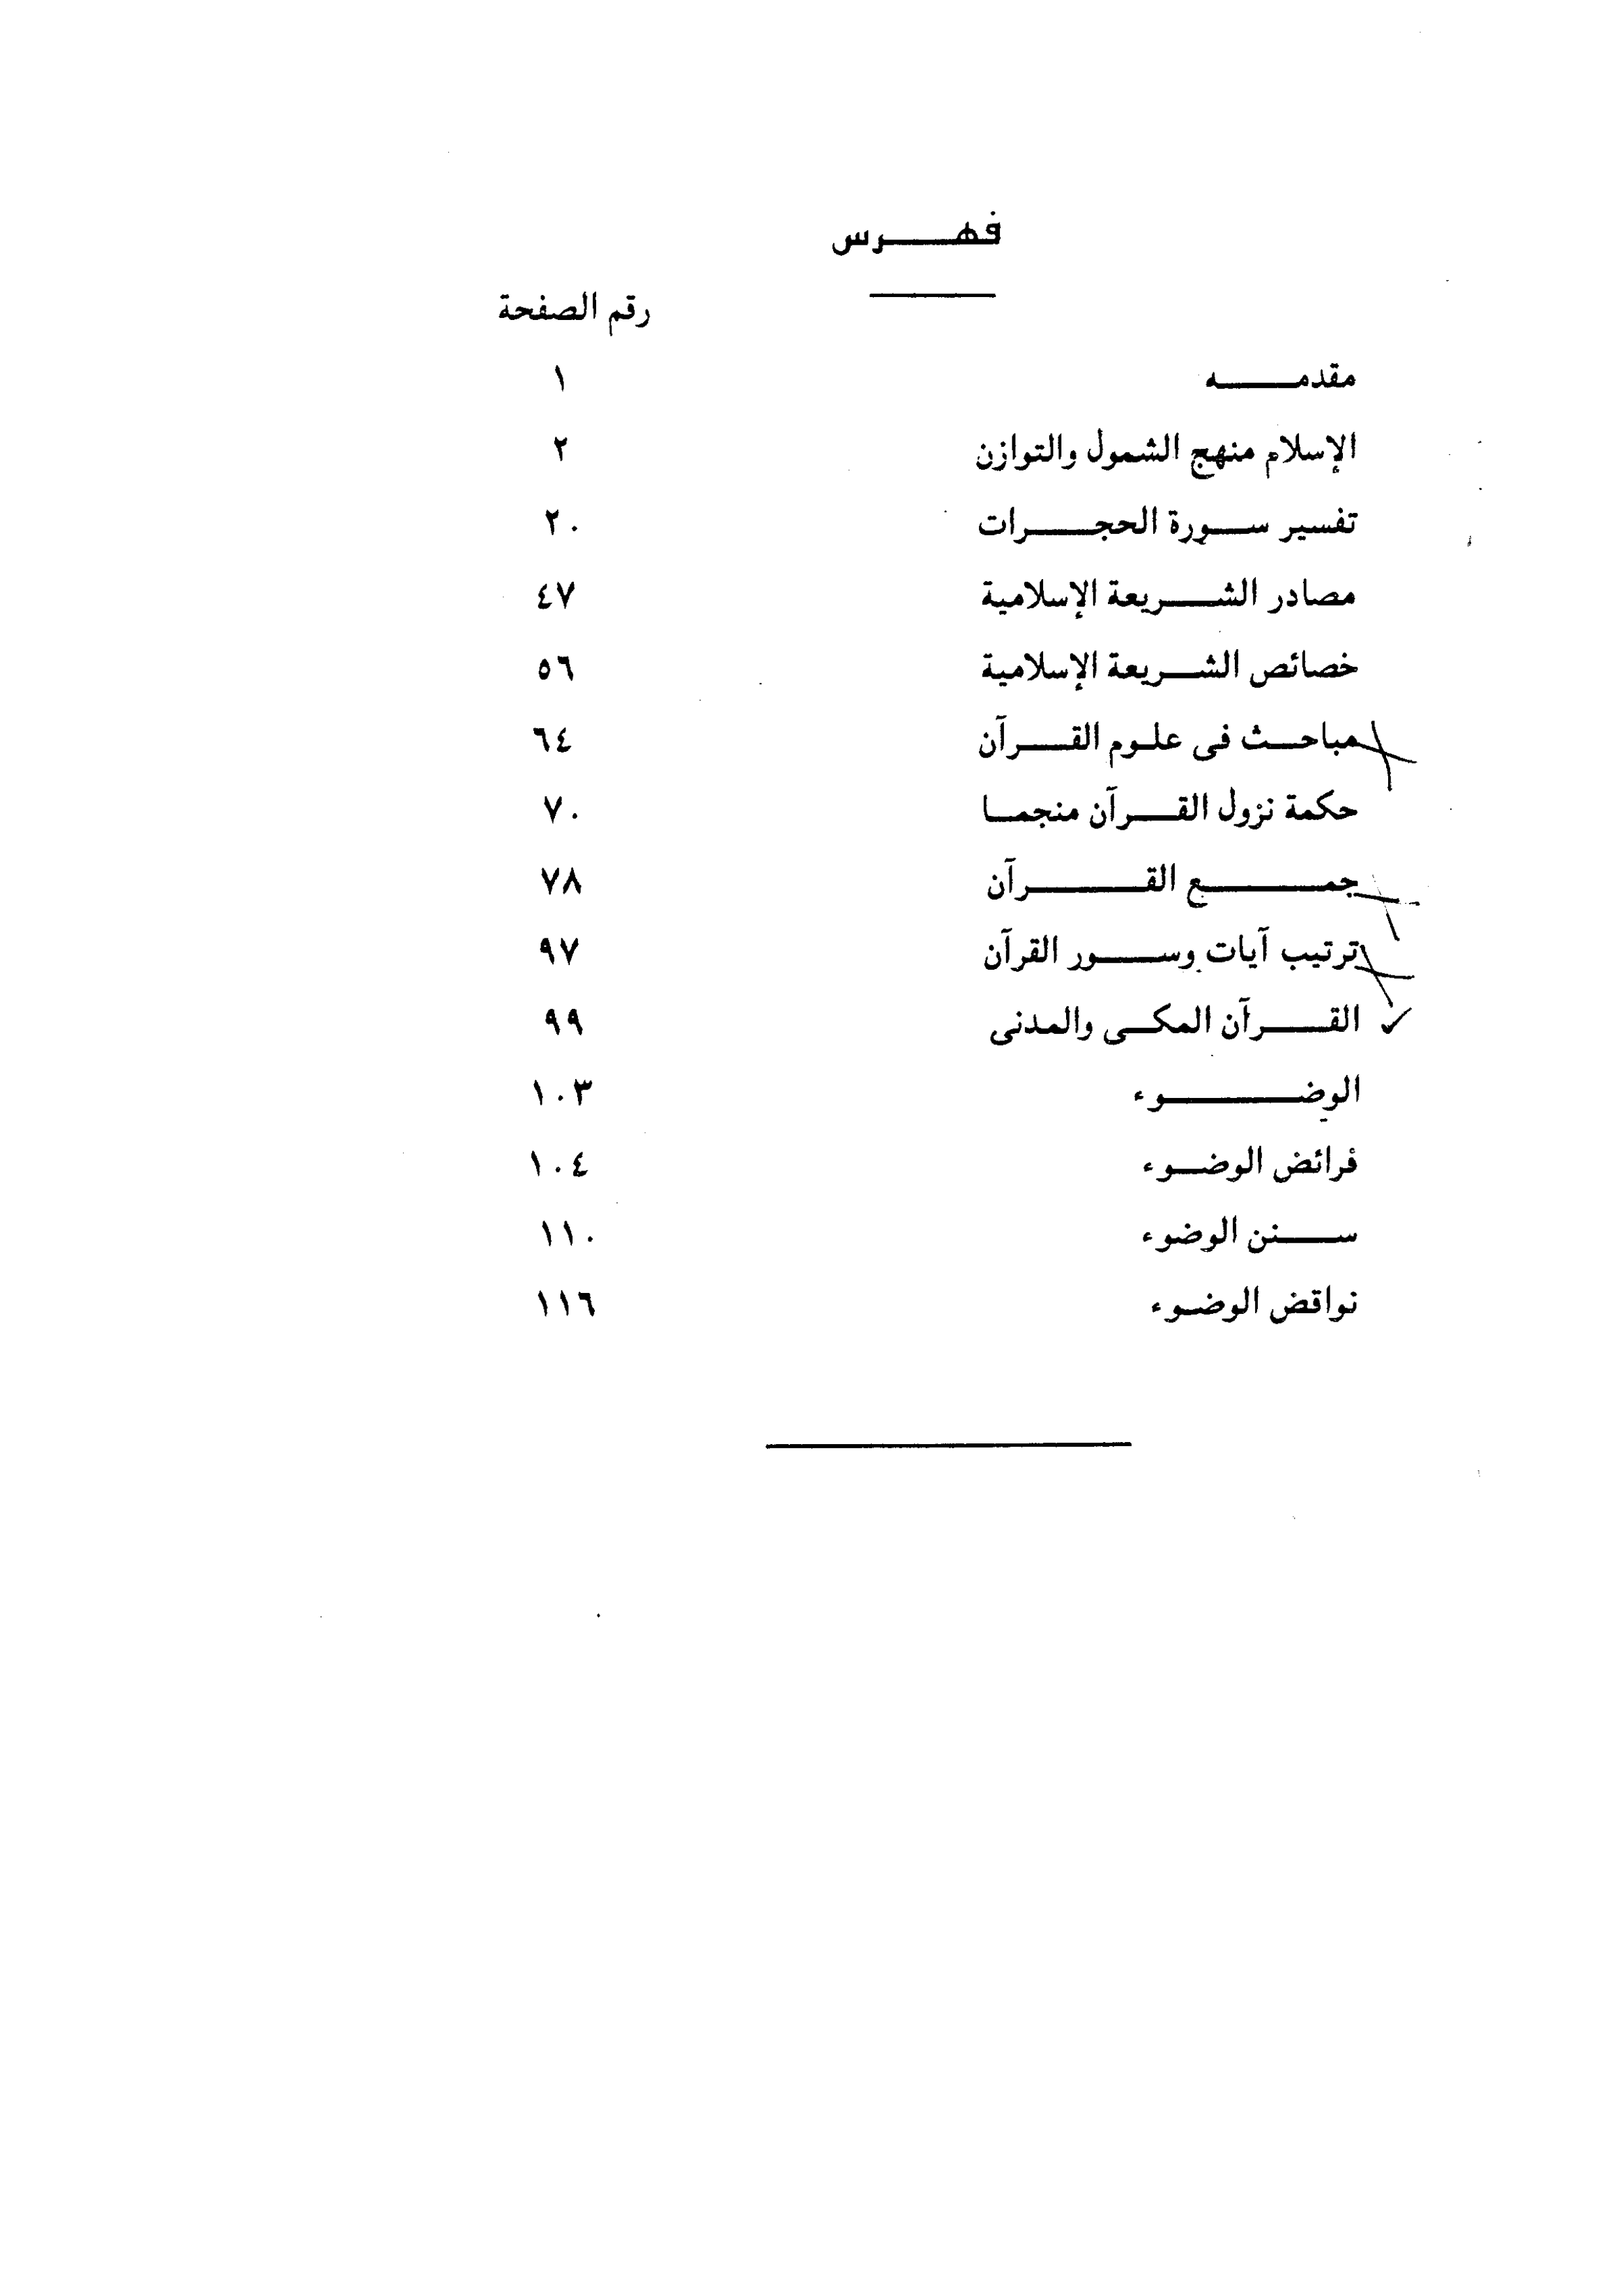 فهرس
رقم الصفحة
مقدمه ١
الإسلام منهج الشمول والتوازن ٢
تفسير سورة الحجرات ٢٠
مصادر الشريعة الإسلامية ٤٧
خصائص الشريعة الإسلامية ٥٦
مباحث فى علوم القرآن ٦٤
حكمة نزول القرآن منجما ٧٠
جمع القرآن ٧٨
ترتيب آيات وسور القرآن ٩٧
القرآن المكى والمدنى ٩٩
الوضوء ١٠٣
فرائض الوضوء ١٠٤
سنن الوضوء ١١٠
نواقض الوضوء ١١٦